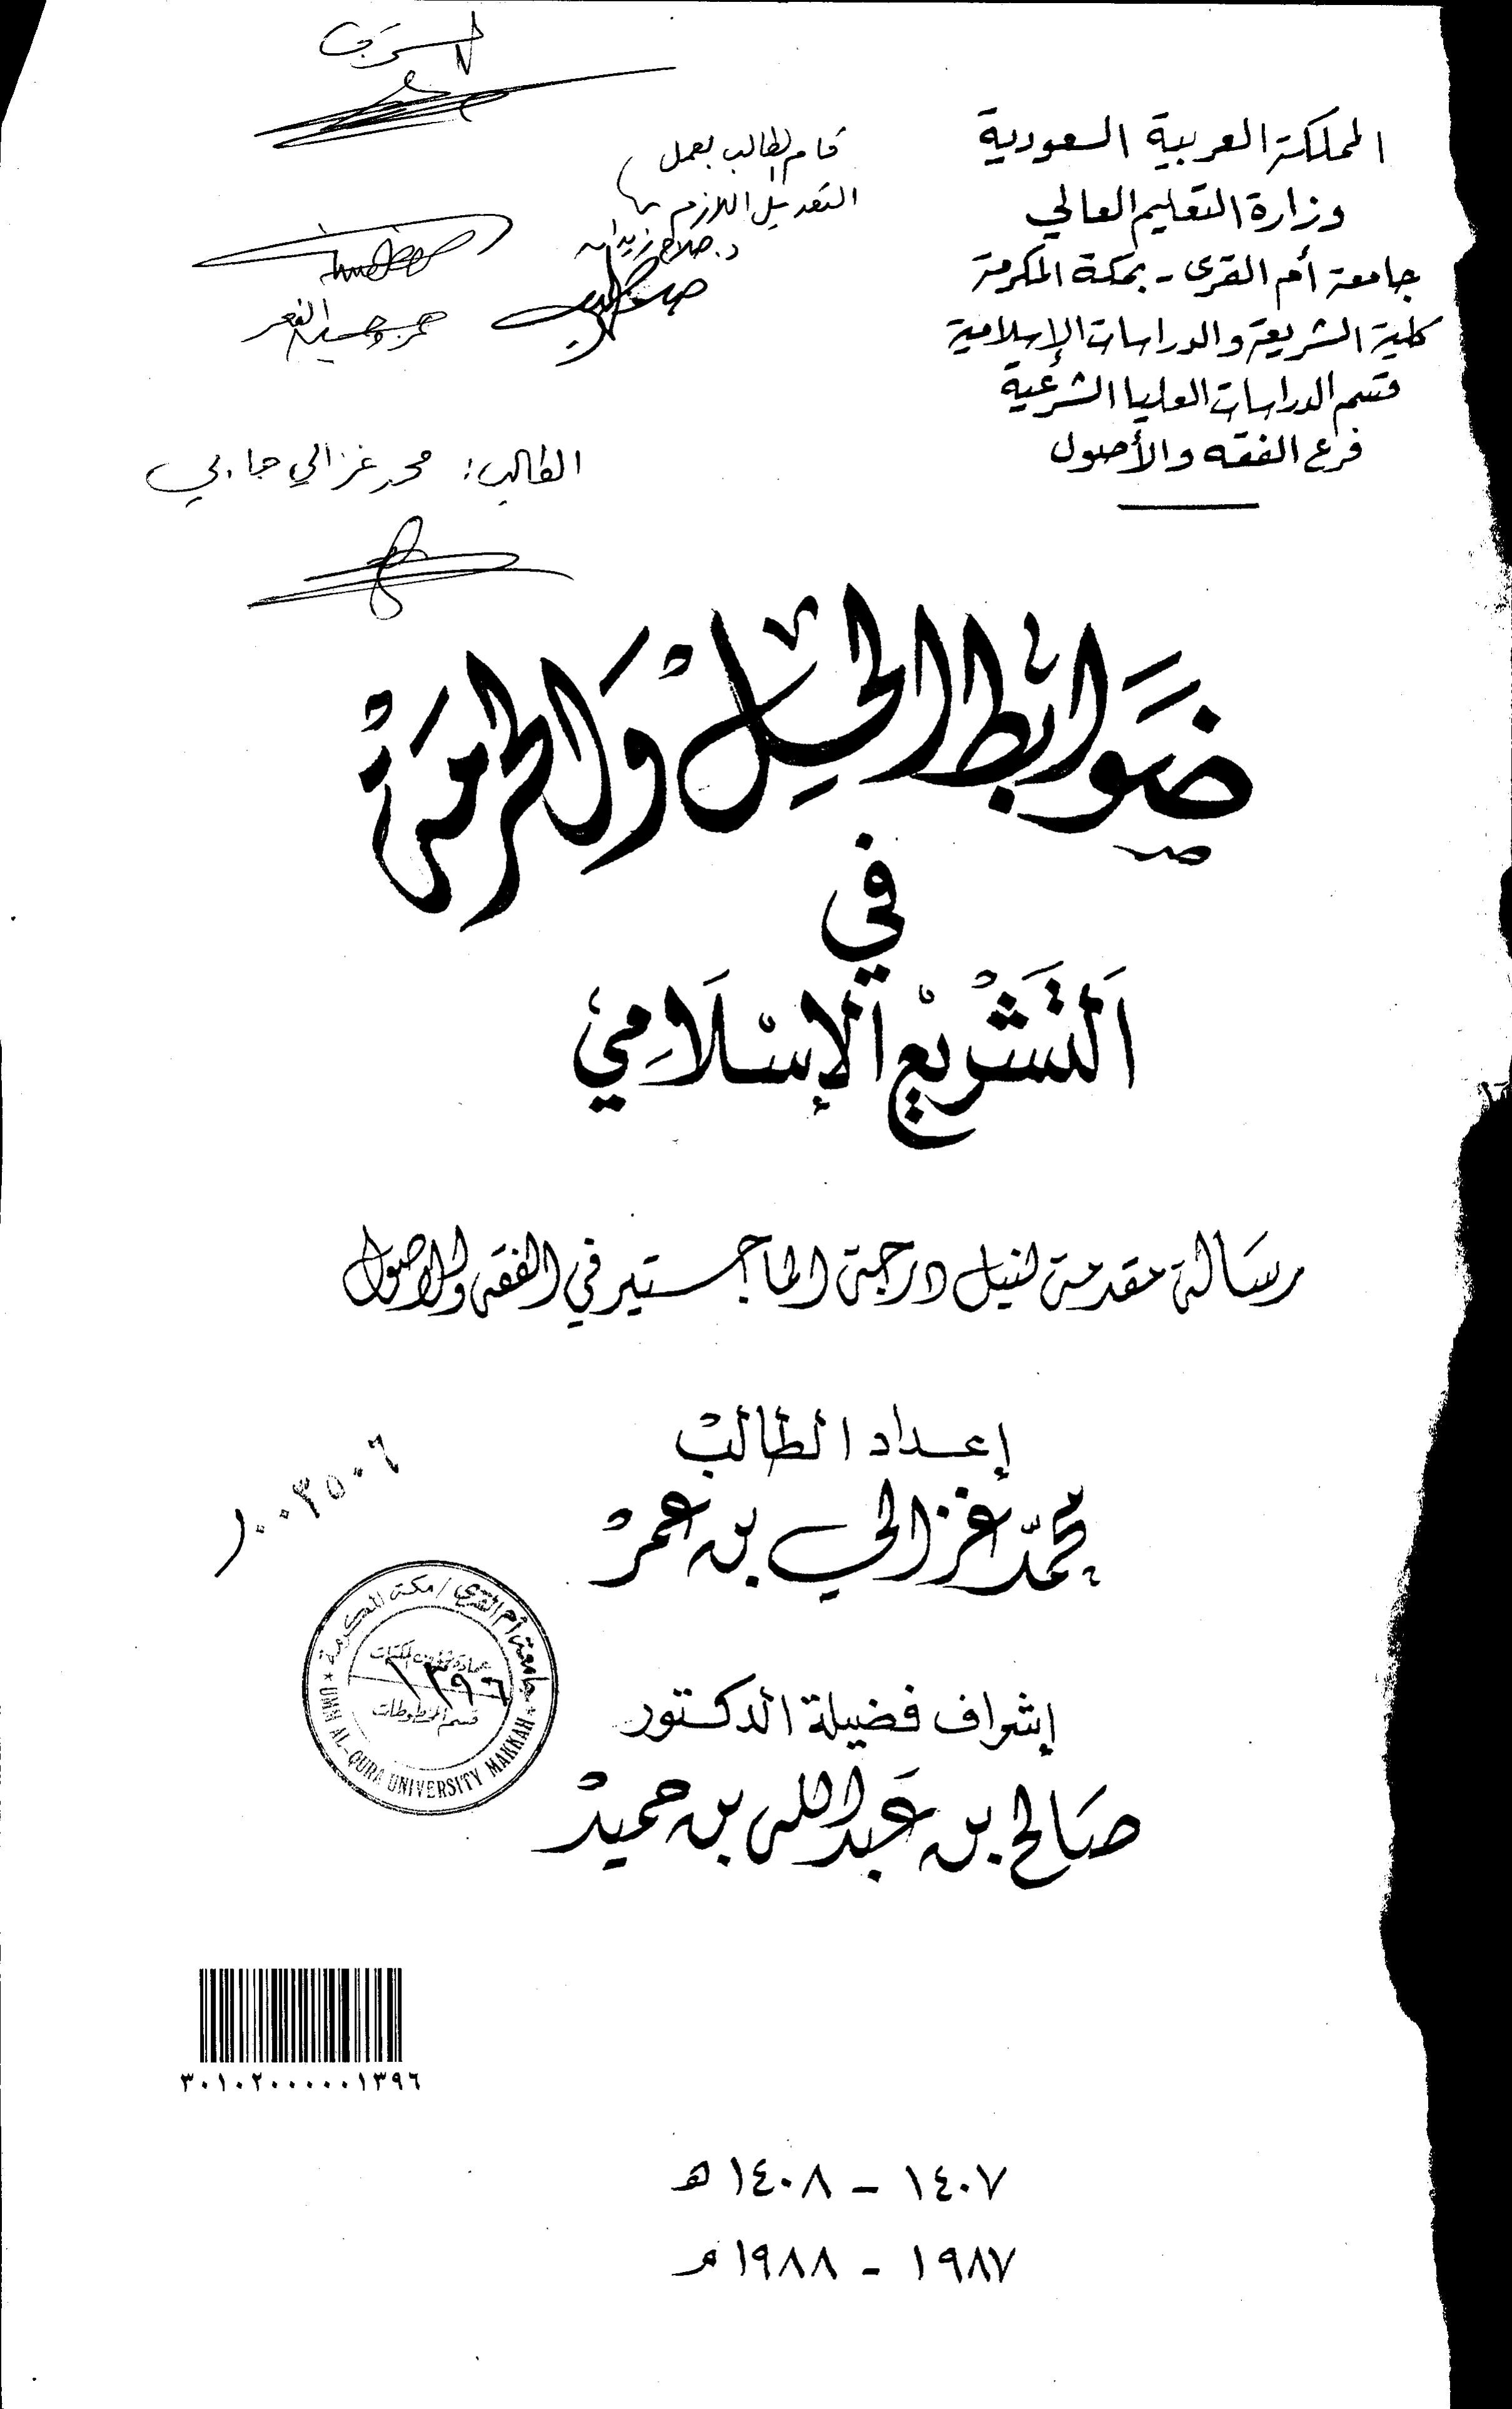 المملكة العربية السعودية
وزارة التعليم العالي
جامعة أم القرى - بمكة المكرمة
كلية الشريعة والدراسات الإسلامية
قسم الدراسات العليا الشرعية
فرع الفقه والأصول
قام الطالب بعمل
التعديل اللازم
د. صلاح زيدان
الطالب: محمد غزالي جابي
ضَوَابِط الحِلْ وَالحُرمَة
في
التَشْريْع الإسْلَامِي
رسَالة مقدمة لنيل درجة الماجستير في الفقه والأصول
إعداد الطالبْ
محمّد غزالي بن عمرْ
١٠٠٣٥٠٦
جامعة أم القرى / مكة المكرمة
عمادة شؤون المكتبات
١٣٩٦
قسم المخطوطات
UMM AL-QURA UNIVERSITY MAKKAH
إشراف فضيلة الدكتور
صَالح بن عَبد الله بن حميدْ
٣٠١٠٢٠٠٠٠٠١٣٩٦
١٤٠٧ - ١٤٠٨ هـ
١٩٨٧ - ١٩٨٨ م